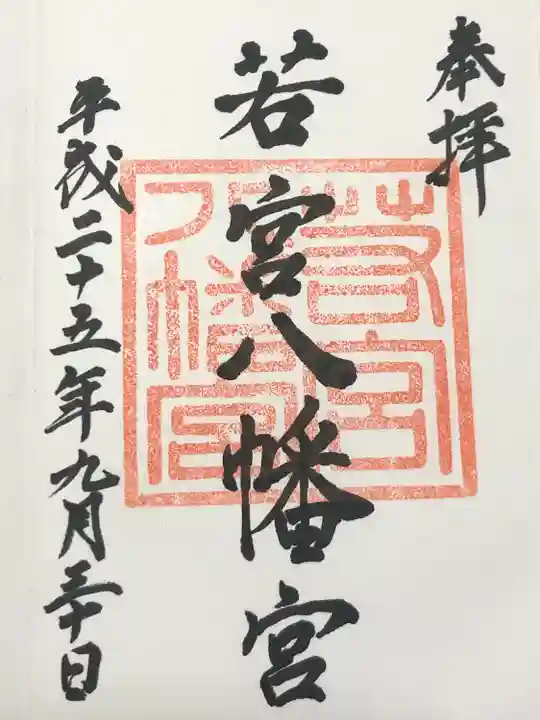 奉拝
若宮八幡宮
若宮八幡宮
平成二十五年九月三十日